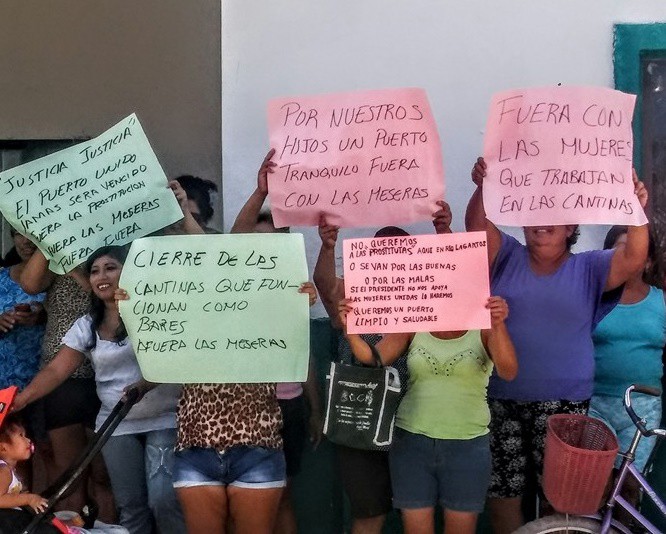 JUSTICIA JUSTICIA!
EL PUERTO UNIDO
JAMAS SERA VENCIDO
FUERA LA PROSTITUCION
FUERA LAS MESERAS
FUERA FUERA
POR NUESTROS
HIJOS UN PUERTO
TRANQUILO FUERA
CON LAS MESERAS
FUERA CON
LAS MUJERES
QUE TRABAJAN
EN LAS CANTINAS
CIERRE DE LAS
CANTINAS QUE FUN-
CIONAN COMO
BARES
AFUERA LAS MESERAS
NO, QUEREMOS
A LAS PROSTITUTAS AQUI EN RIO LAGARTOS
O SE VAN POR LAS BUENAS
O POR LAS MALAS
SI EL PRESIDENTE NO NOS APOYA
LAS MUJERES UNIDAS LO HAREMOS
QUEREMOS UN PUERTO
LIMPIO Y SALUDABLE